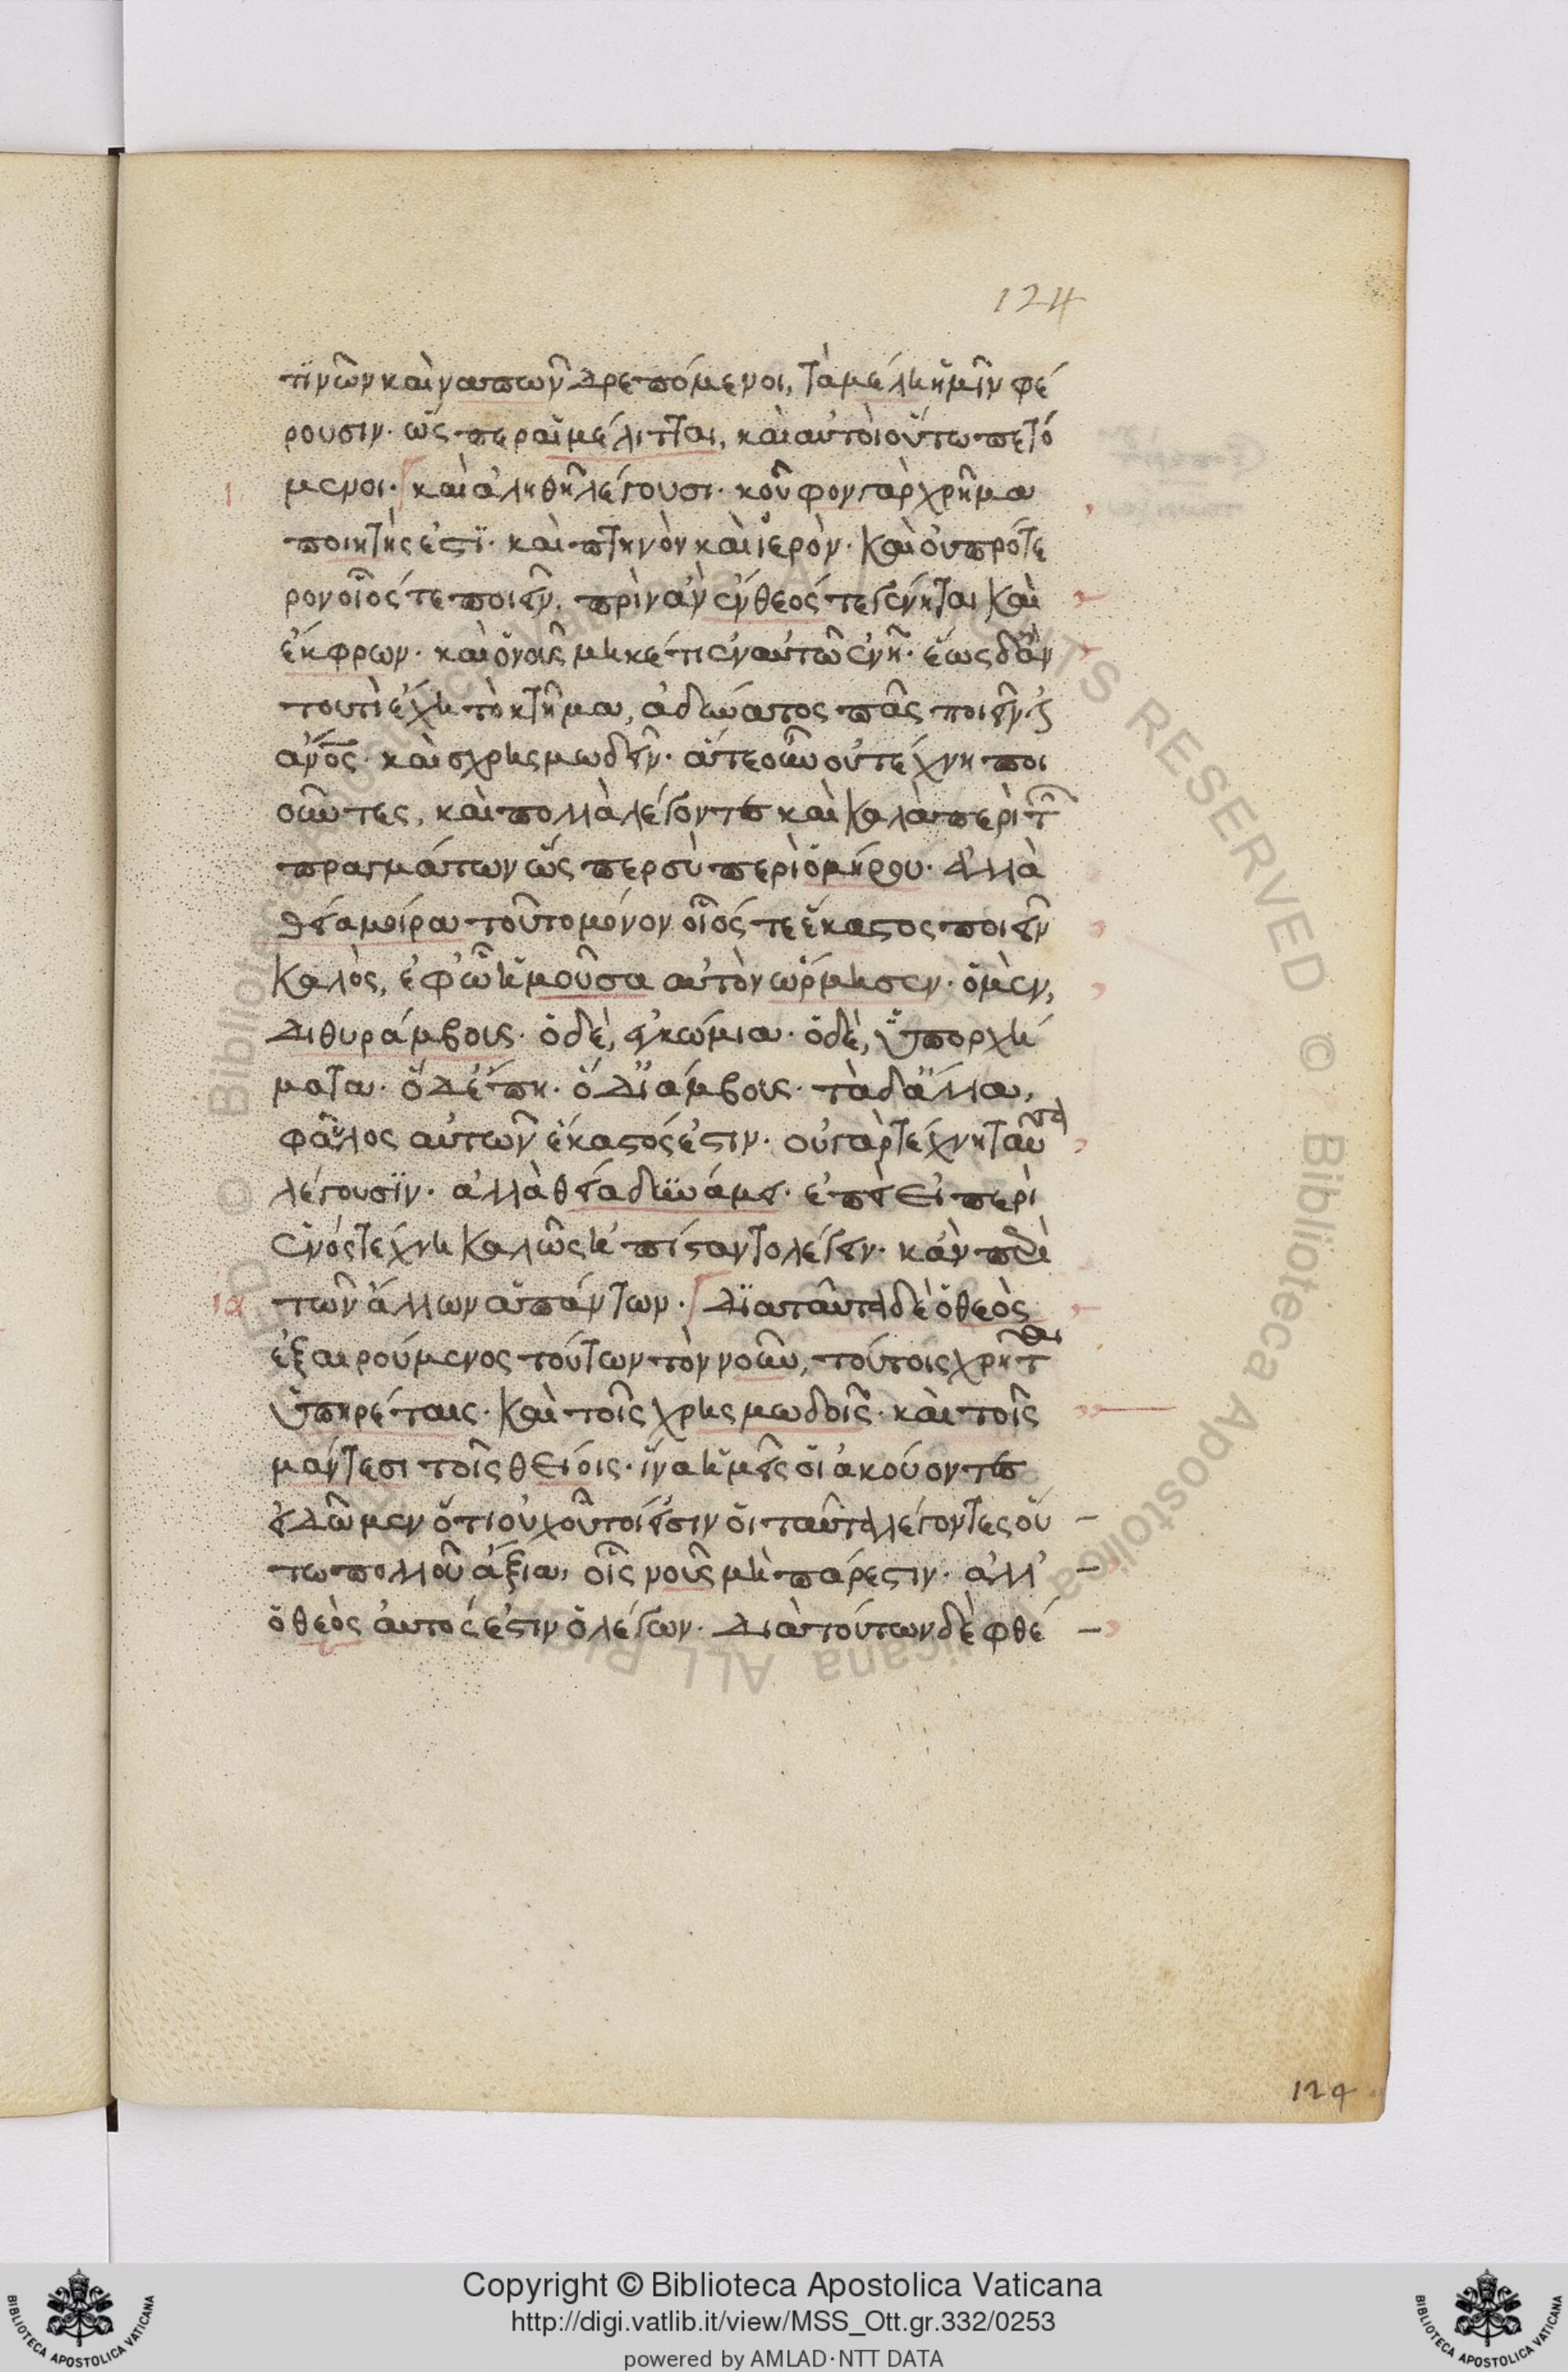 124
τινῶν καὶ ναπῶν δρεπόμενοι, τὰ μέλη ἡμῖν φέ
ρουσιν· ὥσπερ αἱ μέλιτται, καὶ αὐτοὶ οὕτω πετό
μενοι· καὶ ἀληθῆ λέγουσι· κοῦφον γὰρ χρῆμα
ποιητής ἐστϊ· καὶ πτηνὸν καὶ ἱερὸν· καὶ οὐ πρότε
ρον οἷός τε ποιεῖν, πρὶν ἂν ἔνθεός τε γένηται καὶ
ἔκφρων· καὶ ὁ νοῦς μηκέτι ἐν αὐτῶ ἐνῆ· ἕως δ' ἂν
τουτὶ ἔχη τὸ κτῆμα, ἀδύνατος πᾶς ποιεῖν ἐς
ἄνος· καὶ χρησμωδεῖν· ἅτε οὖν οὐ τέχνη ποι
οῦντες, καὶ πολλὰ λέγοντες καὶ καλὰ περὶ τῶν
πραγμάτων ὥσπερ σὺ περὶ ὁμήρου· ἀλλὰ
θεία μοίρα τοῦτο μόνον οἷός τε ἕκαστος ποιεῖν
καλὸς, ἐφ' ὧ ἡ μοῦσα αὐτὸν ὥρμησεν· ὁ μὲν,
διθυράμβους· ὁ δὲ, ἐγκώμια· ὁ δὲ, ὑπορχή
ματα· ὁ δ' ἔπη· ὁ δ' ἰάμβους· τὰ δ' ἄλλα,
φαῦλος αὐτῶν ἕκαστός ἐστιν· οὐ γὰρ τέχνη ταῦτα
λέγουσϊν· ἀλλὰ θεία δυνάμει· ἐπεὶ εἰ περὶ
ἑνὸς τέχνη καλῶς ἠπίσταντο λέγειν· κἂν περὶ
ια τῶν ἄλλων ἁπάντων· διὰ ταῦτα δὲ ὁ θεὸς
ἐξαιρούμενος τούτων τὸν νοῦν, τούτοις χρῆται
ὑπηρέταις· καὶ τοῖς χρησμωδοῖς· καὶ τοῖς
μάντεσι τοῖς θείοις· ἵνα ἡμεῖς οἱ ἀκούοντες
εἰδῶμεν ὅτι οὐχ οὗτοί εἰσιν οἱ ταῦτα λέγοντες οὕ
τω πολλοῦ ἄξια, οἷς νοῦς μὴ πάρεστιν· ἀλλ'
ὁ θεὸς αὐτός ἐστιν ὁ λέγων· διὰ τούτων δὲ φθέ
124
© Biblioteca Apostolica Vaticana ALL RIGHTS RESERVED © Biblioteca Apostolica Vaticana ALL RIGHTS RESERVED
Copyright © Biblioteca Apostolica Vaticana
http://digi.vatlib.it/view/MSS_Ott.gr.332/0253
powered by AMLAD·NTT DATA
BIBLIOTECA APOSTOLICA VATICANA
BIBLIOTECA APOSTOLICA VATICANA